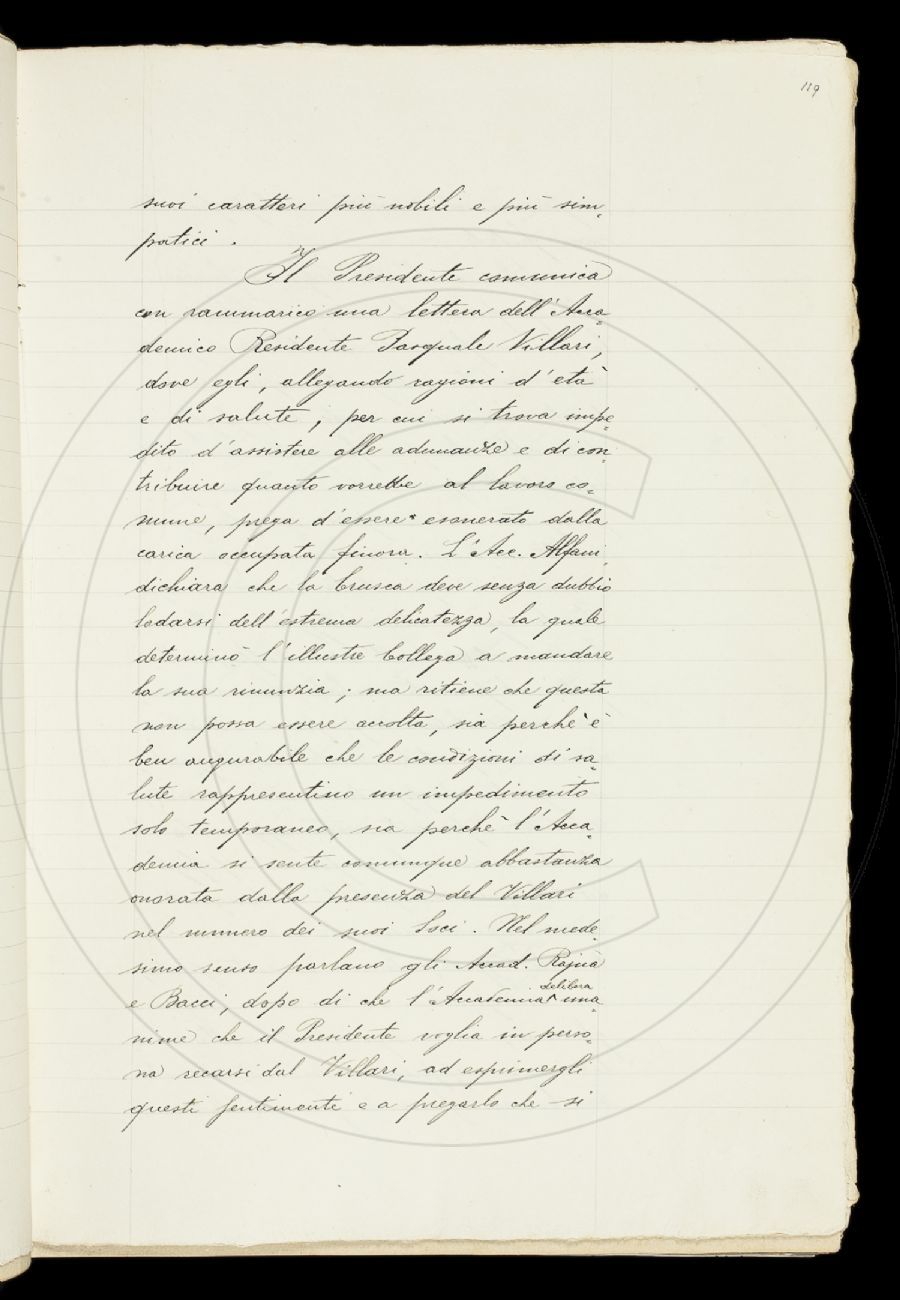 119
suoi caratteri più nobili e più sim=
patici.
Il Presidente comunica
con rammarico una lettera dell'Acca=
demico Residente Pasquale Villari,
dove egli, allegando ragioni d'età
e di salute, per cui si trova impe=
dito d'assistere alle adunanze e di con=
tribuire quanto vorrebbe al lavoro co=
mune, prega d'essere esonerato dalla
carica occupata finora. L'Acc. Alfani
dichiara che la Crusca deve senza dubbio
lodarsi dell'estrema delicatezza, la quale
determinò l'illustre Collega a mandare
la sua rinunzia; ma ritiene che questa
non possa essere accolta, sia perchè è
ben augurabile che le condizioni di sa=
lute rappresentino un impedimento
solo temporaneo, sia perchè l'Acca=
demia si sente comunque abbastanza
onorata dalla presenza del Villari
nel numero dei suoi Soci. Nel mede=
simo senso parlano gli Accad. Rajna
e Bacci, dopo di che l'Accademia delibera una=
nime che il Presidente voglia in perso=
na recarsi dal Villari, ad esprimergli
questi sentimenti e a pregarlo che si